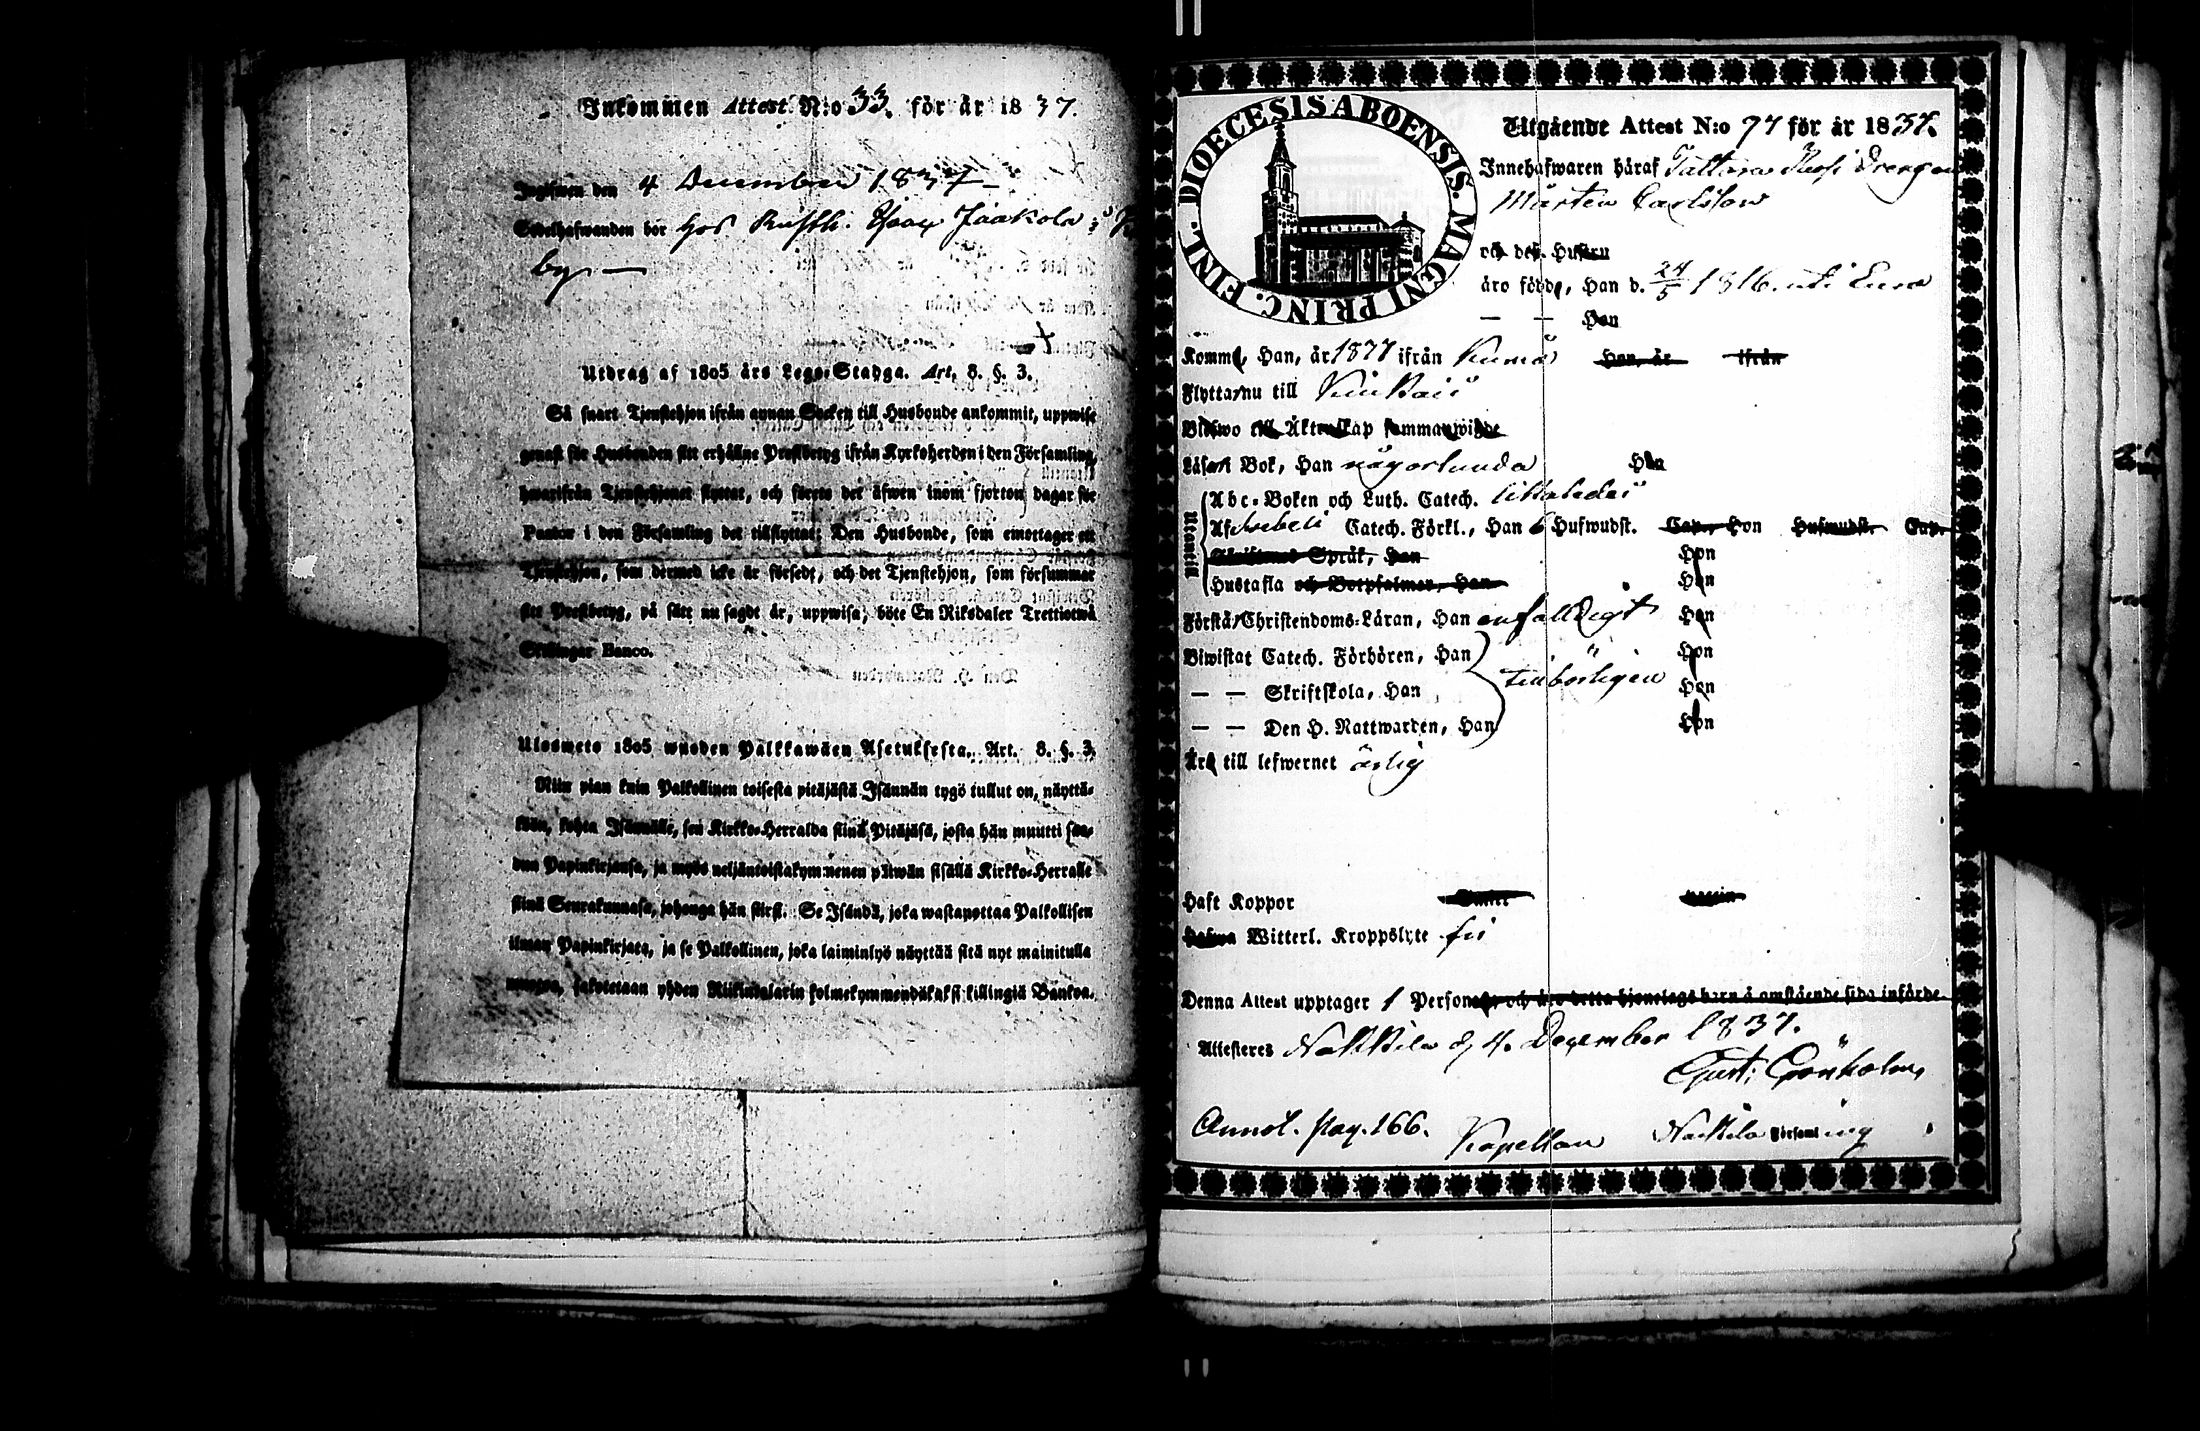 Inkommen Attest N:o 33. för år 1837.
Ingifwen den 4 December 1837
Sedelhafwanden bor hos Rusth. Isaac Jaakola i
by. —
Utdrag af 1805 års Lego-Stadga. Art. 8. §. 3.
Så snart Tjenstehjon ifrån annan Socken till Husbonde ankommit, uppwise
genast för Husbonden sitt erhållne Prestbetyg ifrån Kyrkoherden i den Församling,
hwarifrån Tjenstehjonet flyttat, och förete det äfwen inom fjorton dagar för
Pastor i den Församling det tillflyttat; Den Husbonde, som emottager ett
Tjenstehjon, som dermed icke är försedt, och det Tjenstehjon, som försummar
sitt Prestbetyg, på sätt nu sagdt är, uppwisa, böte En Riksdaler Trettiotwå
Skillingar Banco.
Ulosweto 1805 wuoden Palkkawäen Asetuksesta. Art. 8. §. 3.
Niin pian kuin Palkollinen toisesta pitäjästä Isännän tygö tullut on, näyttä-
kään, kohta Isännälle, sen Kirkko-Herralda siinä Pitäjäsä, josta hän muutti saa-
dun Papinkirjansa, ja myös neljäntoistakymmenen päiwän sisällä Kirkko-Herralle
siinä Seurakunnasa, johonga hän siirsi. Se Isändä, joka wastaanottaa Palkollisen
ilman Papinkirjata, ja se Palkollinen, joka laiminlyö näyttää sitä nyt mainitulla
muotoa, sakotetaan yhden Riikintalarin kolmekymmendäkaksi killingiä Bankoa.
DIOECESIS ABOENSIS. MAGNI PRINC. FINL.
Utgående Attest N:o 97 för år 1837.
Innehafwaren häraf Drengen
Mårten Carlsson
och des. Hustru
äro födde, Han d. 24/5 1816. uti Eura
— — Hon
Komme, Han, år ifrån Kumo Hon, år ifrån
Flyttar nu till Kiukais
Blefwo till Äktenskap sammanwigde
Läsa i Bok, Han någorlunda Hon
Utantill
Abc-Boken och Luth. Catech.
Af Swebelii Catech. Förkl., Han 6 Hufwudst. Cap., Hon Hufwudst. Cap.
Språk, Han Hon
Hustafla och Botpsalmer, Han Hon
Förstå Christendoms-Läran, Han enfalldigt Hon
Biwistat Catech. Förhören, Han Hon
— — Skriftskola, Han tillbörligen Hon
— — Den H. Nattwarden, Han Hon
Äro till lefwernet ärlig
Haft Koppor
Witterl. Kroppslyte fri
Denna Attest upptager 1 Personer och äro detta hjonelags barn å omstående sida införde.
Attesteras Nakkila d. 4. December 1837.
Gust: Grönholm,
Annot. pag. 166. Kapellan Nakkila Församling